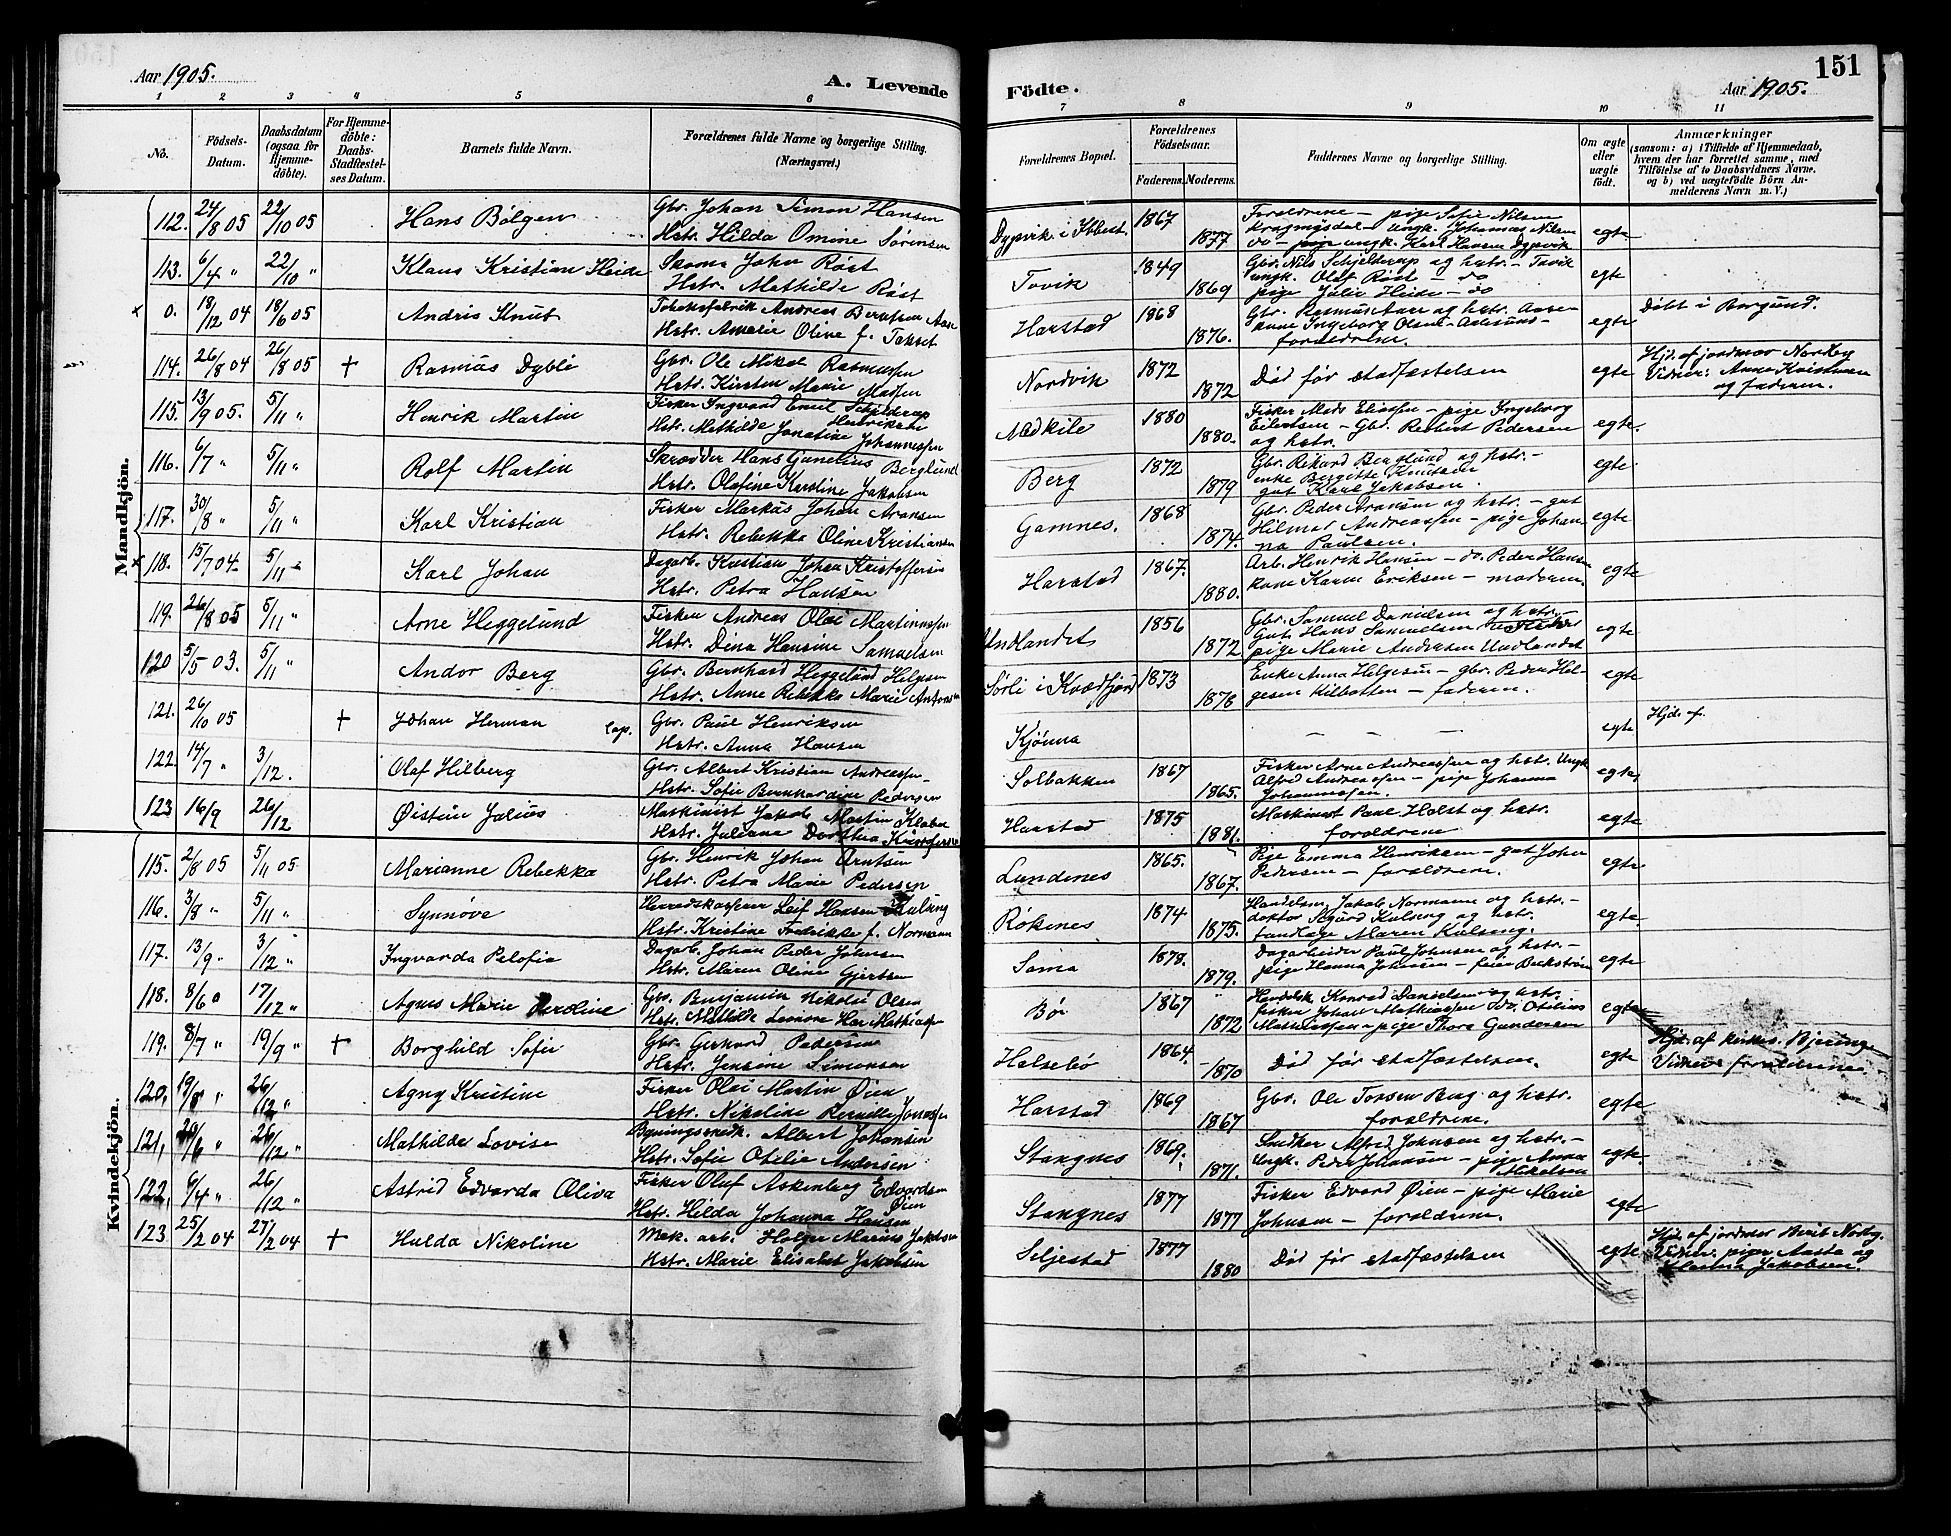 Aar 1905.
A. Levende
Födte.
Aar 1905.
151
1 2 3 4 5 6 7 8 9 10 11
No.
Födsels-Datum.
Daabsdatum (ogsaa for Hjemmedöbte).
For Hjemmedöbte: Daabs-Stadfæstelses Datum.
Barnets fulde Navn.
Forældrenes fulde Navne og borgerlige Stilling. (Næringsvei.)
Forældrenes Bopæl.
Forældrenes Födselsaar.
Faderens. Moderens.
Faddernes Navne og borgerlige Stilling.
Om ægte eller uægte födt.
Anmærkninger
(saasom: a) i Tilfælde af Hjemmedaab, hvem der har forrettet samme, med Tilföielse af to Daabsvidners Navne. og b) ved uægtefödte Börn Anmelderens Navn m. V.)
Mandkjön.
112. 24/8 05 22/10 05 Hans Bølgen Gbr. Johan Simon Hansen
Hstr. Hilda Omine Sørensen
Dypvik i Ibbest. 1867 1877 Forældrene – pige Sofie Nilsen
– ungk. Johannes Nilsen
do – pige ungk. Karl Hansen Dypvik egte
113. 6/4 " 22/10 " Klaus Kristian Heide Skom. John Røst
Hstr. Mathilde Røst
Tovik 1849 1869 Gbr. Nils Schjelderup og hstr. – Tovik
ungk. Olaf Røst – do
pige Julie Heide – do egte
x 0. 18/12 04 18/6 05 Andris Knut Tobaksfabrik Andreas Berntsen Aase
Hstr. Amalie Oline f. Takset
Harstad 1868 1876. Gbr. Rasmus Aase og hstr. Aase
forældrene. egte Døbt i Borgund.
114. 26/8 04 26/8 05 + Rasmus Dyblé Gbr. Ole Mikal Rasmussen
Hstr. Kirsten Marie Madsen
Nordvik 1872 1872 Død før stadfæstelsen egte Hjd. af jordmor Nordby
Vidner: Anne Kristensen
og faderen.
115. 13/9 05. 5/11 " Henrik Martin Fisker Ingvard Emil Schjelderup
Henriksen
Hstr. Mathilde Jonatine Johannessen
Medkile 1880 1880. Fisker Mads Eliassen – pige Ingeborg
Eilertsen – Gbr. Reibert Pedersen
og hstr. egte.
116. 6/7 " 5/11 " Rolf Martin Skrædder Hans Gunelius Berglund
Hstr. Olefine Kerstine Jakobsen
Berg 1872 1879 Gbr. Rikard Berglund og hstr. –
enke Bergitte Knutsen
gut Karl Jakobsen. egte
117. 30/8 " 5/11 " Karl Kristian Fisker Markus Johan Aronsen
Hstr. Rebekka Oline Kristiansen
Gamnes. 1868 1874. Gbr. Peder Aronsen og hstr. – gut
Hilmar Andreassen – pige Johan
na Paulsen. egte
x 118. 15/7 04 5/11 " Karl Johan Dagarb. Kristian Johan Kristoffersen
Hstr. Petra Hansen
Harstad 1867. 1880. Arb. Henrik Hansen – do. Peder Hansen
kone Karen Eriksen – moderen. egte
119. 26/8 05 5/11 " Arne Heggelund Fisker Andreas Olai Martinussen
Hstr. Dina Hansine Samuelsen
Undlandet 1856 1872 Gbr. Samuel Danielsen og hstr. –
Gut Hans Samuelsen
pige Marie Andersen Undlandet egte
120 5/5 03. 5/11 " Andor Berg Gbr. Bernhard Heggelund Helgesen
Hstr. Anne Rebekka Marie Antonsen
Sørli i Kvædfjord 1873 1878 Enke Anna Helgesen – gbr. Peder Hel-
gesen Kilbotten – faderen. egte
121. 26/10 05 + Johan Herman Lap. Gbr. Paul Henriksen
Hstr. Anna Hansen
Kjønna – – – egte Hjd. af
122. 14/7 " 3/12. Olaf Hilberg Gbr. Albert Kristian Andreassen
Hstr. Sofie Bernhardine Pedersen
Solbakken 1867 1865. Fisker Arne Andreassen og hstr. Ungk.
Alfred Andreassen – pige Johanna
Johannessen. egte
123 16/9 26/12 Øistein Julius Maskinist Jakob Martin Klabo
Hstr. Juliane Dorthea Kristoffersen
Harstad 1875 1881. Maskinist Paul Holst og hstr.
forældrene egte
Kvindekjön.
115. 2/8 05 5/11 05 Marianne Rebekka Gbr. Henrik Johan Arntsen
Hstr. Petra Marie Pedersen
Lundenes 1865. 1867. Pige Emma Henriksen – gut Johan
Pedersen – forældrene. egte
116. 3/8 " 5/11 " Synnøve Herredskasserer Leif Hansen Kulseng
Hstr. Kristine Fredrikke f. Normann
Røkenes 1874 1875. Handelsm. Jakob Normann og hstr. –
doktor Sigurd Kulseng og hstr.
tandlæge Maren Kulseng. egte
117. 13/9 " 3/12 " Ingvarda Pelofia Dagarb. Johan Peder Johnsen
Hstr. Maren Oline Gjertsen
Sama 1878. 1879. Dagarbeider Paul Johnsen og hstr. –
pige Hanna Johnsen – feier Beckstrøm egte
118. 8/6 " 17/12 " Agnes Marie Peroline Gbr. Benjamin Nikolai Olsen
Hstr. Mathilde Leonore Mathiassen
Bø 1867 1872 Handelsb. Konrad Danielsen og hstr.
fisker Johan Mathiassen do. Otilius
Mathiassen – pige Thora Gundersen egte
119. 8/7 " 19/9 " + Borghild Sofie Gbr. Gerhard Pedersen
Hstr. Jensine Simonsen
Halsebø 1864. 1870 Død før stadfæstelsen. egte Hjd. af kirkes. Bjeringe
Vidner forældrene.
120, 19/8 " 26/12 " Agny Kristine Fisker Olai Martin Øien
Hstr. Nikoline Pernelle Jonassen
Harstad 1869 1867 Gbr. Ole Torsen Berg og hstr.
forældrene. egte
121, 20/6 " 26/12 " Mathilde Lovise Bygningssnedk. Albert Johansen
Hstr. Sofie Otelie Andersen
Stangnes 1869. 1871. Snedker Alfred Johnsen og hstr. –
Ungk. Peder Johansen – pige Anna
Mikalsen egte
122, 6/4 " 26/12 " Astrid Edvarda Oliva Fisker Oluf Askenberg Edvardsen
Øien
Hstr. Hilda Johanna Hansen
Stangnes 1877 1877 Fisker Edvard Øien – pige Marie
Johnsen – forældrene. egte
123 25/2 04 27/2 04 + Hulda Nikoline Mek. arb. Holger Marius Jakobsen
Hstr. Marie Elisabet Jakobsen
Seljestad 1877 1880 Død før stadfæstelsen egte Hjd. af jordmor Berit Norby.
Vidner: piger Aasta og
Jakobsen.